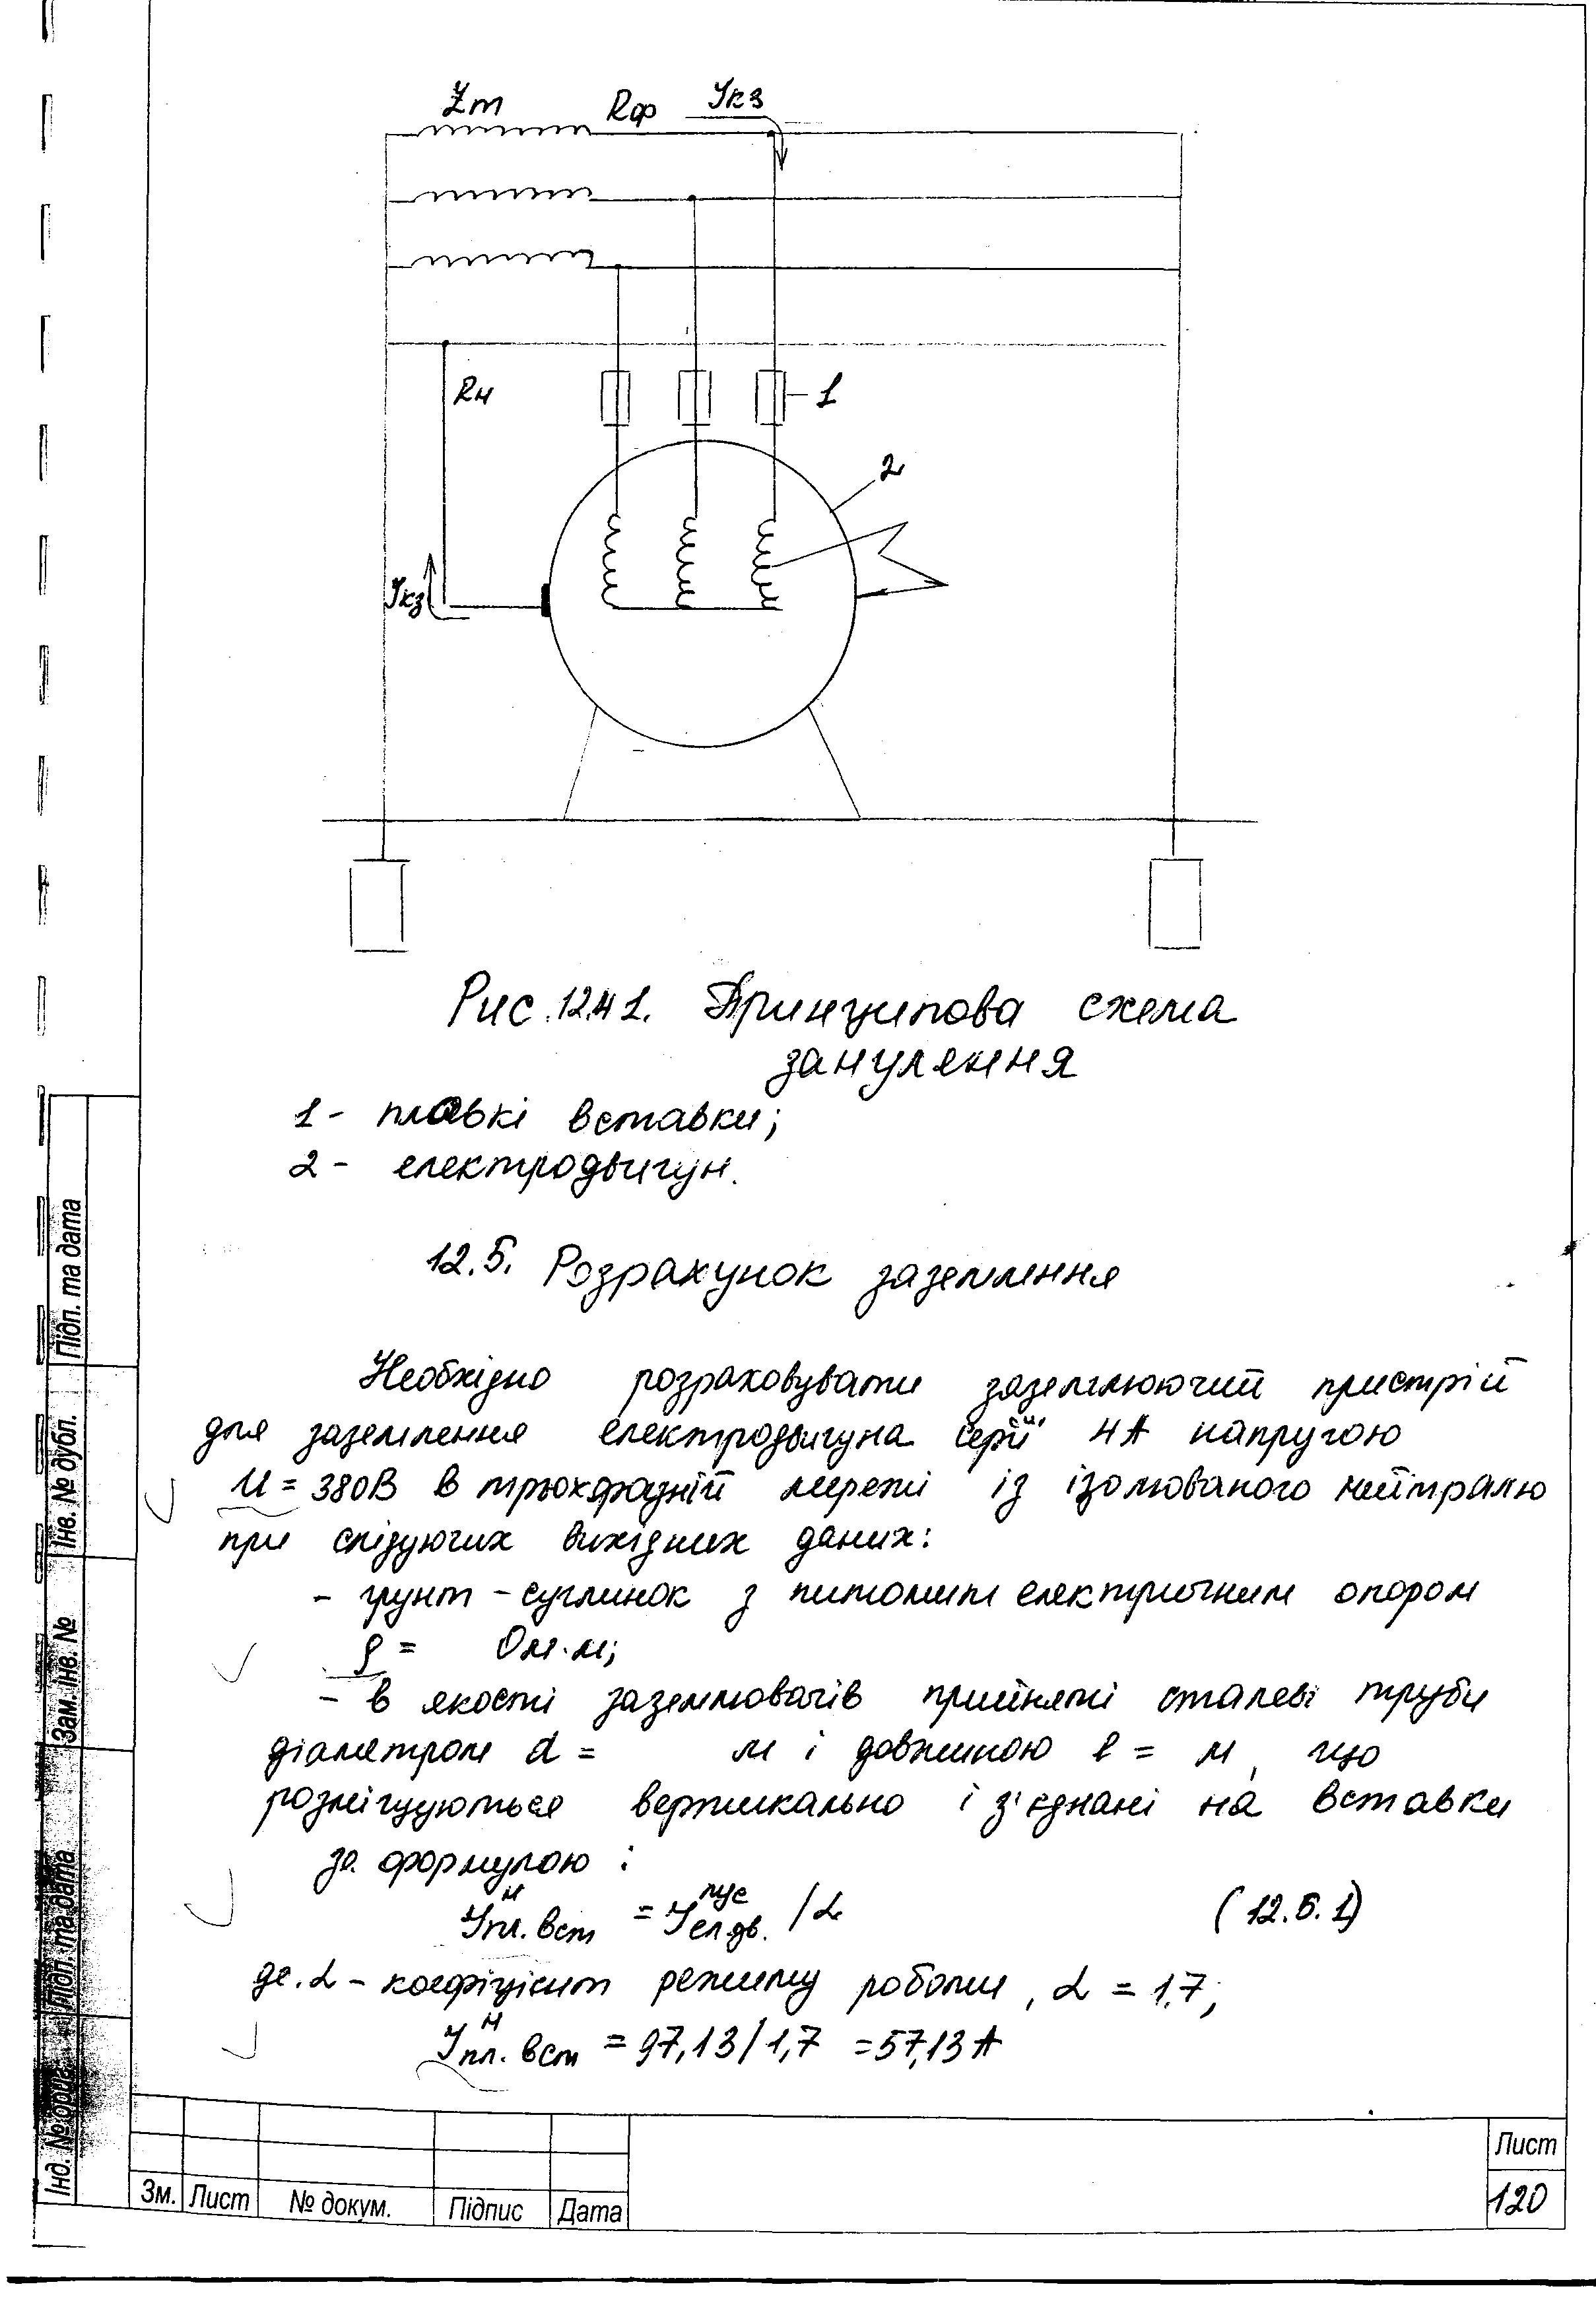 Zт Rф Iкз
Rн
1
2
Iкз
Рис.12.4.1. Принципова схема
занулення
1 - плавкі вставки;
2 - електродвигун.
12.5. Розрахунок заземлення
Необхідно розраховувати заземлюючий пристрій
для заземлення електродвигуна серії 4А напругою
U = 380В в трьохфазній мережі із ізолюваного нейтралю
при слідуючих вихідних даних:
- грунт - суглинок з питомим електричним опором
ρ = Ом·м;
- в якості заземлювачів прийняті сталеві труби
діаметром d = м і довжиною l = м, що
розміщуються вертикально і з'єднані на вставки
за формулою :
Iпл.вст^н = Iел.дв.^пус / α (12.5.1)
де. α - коефіцієнт режиму роботи, α = 1,7;
Iпл.вст^н = 97,13/1,7 = 57,13 А
Підп. та дата
Інв. № дубл.
Зам. інв. №
Підп. та дата
Інд. № ориг.
Зм. Лист № докум. Підпис Дата
Лист
120